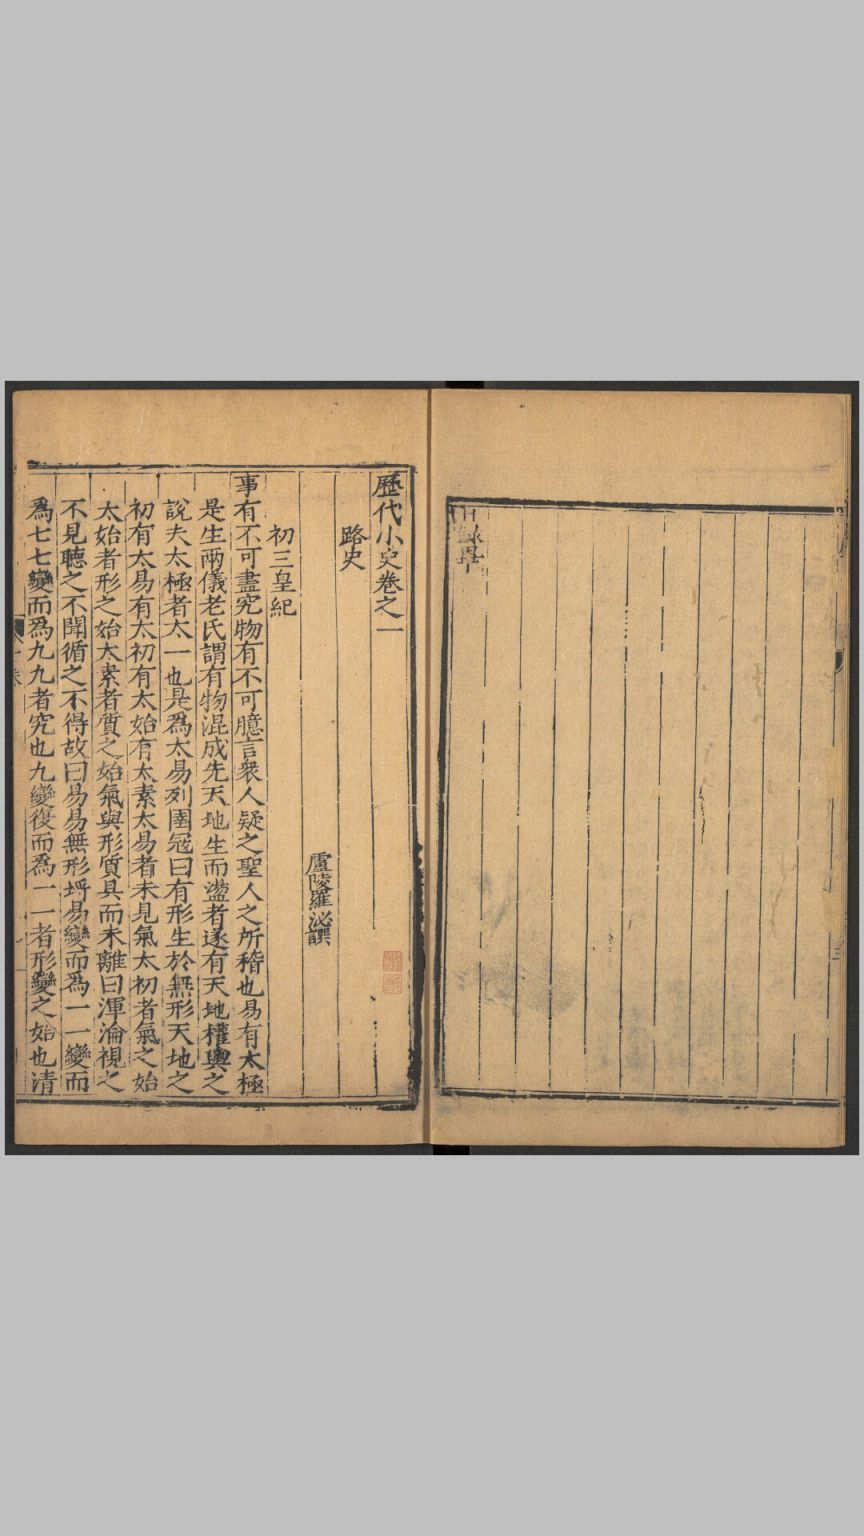 目錄畢
歷代小史卷之一
路史
盧陵羅泌譔
初三皇紀
事有不可盡究物有不可臆言衆人疑之聖人之所稽也易有太極
是生兩儀老氏謂有物混成先天地生而盪者遂有天地權輿之
說夫太極者太一也是爲太易列圄冦曰有形生於無形天地之
初有太易有太初有太始有太素太易者未見氣太初者氣之始
太始者形之始太素者質之始氣與形質具而未離曰渾淪視之
不見聽之不聞循之不得故曰易易無形埒易變而爲一一變而
爲七七變而爲九九者究也九變復而爲一一者形變之始也清